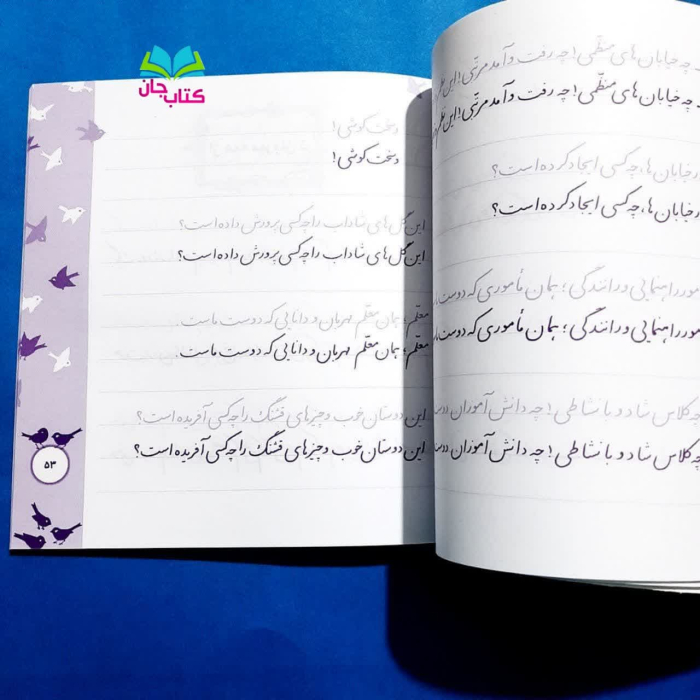 کتاب جان
چه خیابان های منظّمی! چه رفت و آمد مرتّبی! این
چه خیابان های منظّمی! چه رفت و آمد مرتّبی! این
خیابان ها، چه کسی ایجاد کرده است؟
خیابان ها، چه کسی ایجاد کرده است؟
راهنمایی و رانندگی؛ همان مأموری که دوست
راهنمایی و رانندگی؛ همان مأموری که دوست
چه کلاس شاد و با نشاطی! چه دانش آموزان
چه کلاس شاد و با نشاطی! چه دانش آموزان
و سخت کوشی!
و سخت کوشی!
این گل های شاداب را چه کسی پرورش داده است؟
این گل های شاداب را چه کسی پرورش داده است؟
معلّم؛ همان معلّم مهربان و دانایی که دوست ماست.
معلّم؛ همان معلّم مهربان و دانایی که دوست ماست.
این دوستان خوب و چیزهای قشنگ را چه کسی آفریده است؟
این دوستان خوب و چیزهای قشنگ را چه کسی آفریده است؟
۵۳